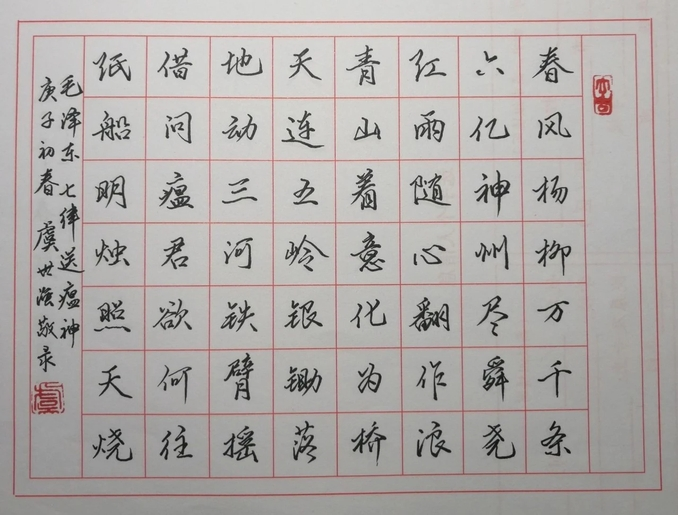 春风杨柳万千条
六亿神州尽舜尧
红雨随心翻作浪
青山着意化为桥
天连五岭银锄落
地动三河铁臂摇
借问瘟君欲何往
纸船明烛照天烧
毛泽东七律送瘟神
庚子初春 虞世 敬录